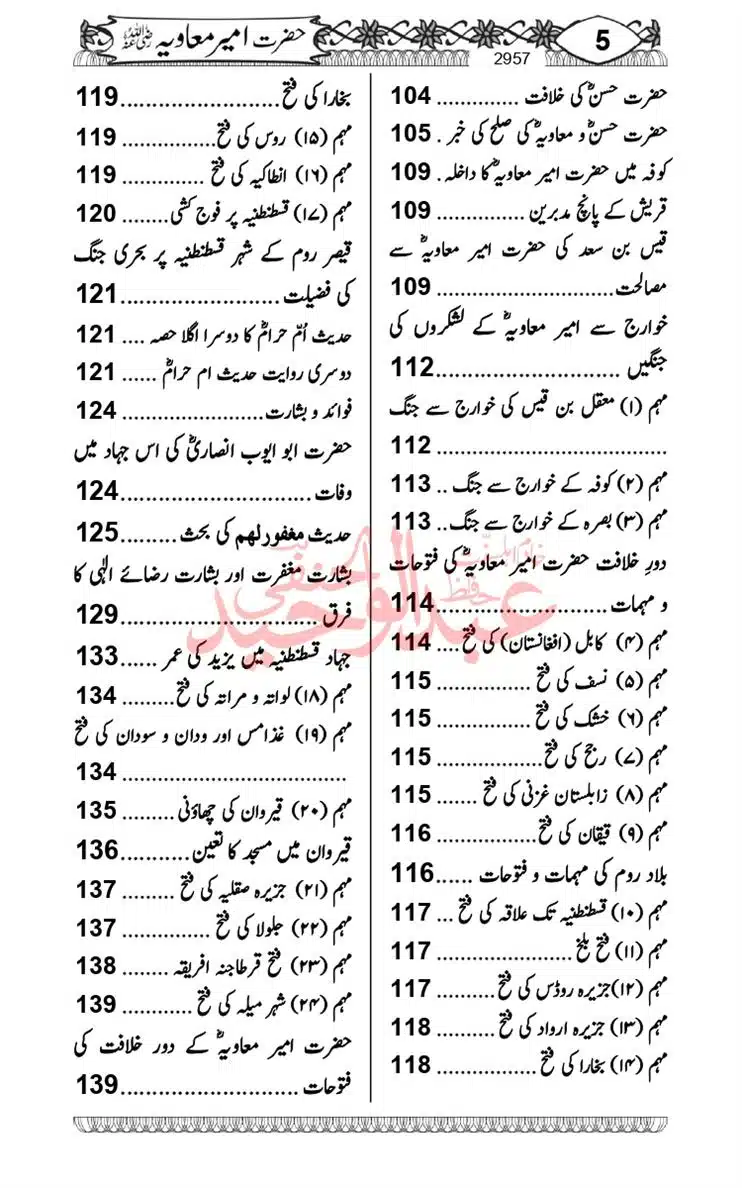 حضرت امیر معاویہ رضی اللہ عنہ
5
2957
حضرت حسنؓ کی خلافت ............. 104
حضرت حسنؓ و معاویہؓ کی صلح کی خبر . 105
کوفہ میں حضرت امیر معاویہؓ کا داخلہ . 109
قریش کے پانچ مدبرین .............. 109
قیس بن سعد کی حضرت امیر معاویہؓ سے
مصالحت............................ 109
خوارج سے امیر معاویہؓ کے لشکروں کی
جنگیں .............................. 112
مہم (۱) معقل بن قیس کی خوارج سے جنگ
..................................... 112
مہم (۲) کوفہ کے خوارج سے جنگ .. 113
مہم (۳) بصرہ کے خوارج سے جنگ.. 113
دورِ خلافت حضرت امیر معاویہؓ کی فتوحات
و مہمات ........................... 114
مہم (۴) کابل (افغانستان) کی فتح.... 114
مہم (۵) نسف کی فتح ............... 115
مہم (۶) خشک کی فتح ............... 115
مہم (۷) رخج کی فتح................. 115
مہم (۸) زابلستان غزنی کی فتح ....... 115
مہم (۹) قیقان کی فتح................ 116
بلاد روم کی مہمات و فتوحات ...... 116
مہم (۱۰) قسطنطنیہ تک علاقہ کی فتح ... 117
مہم (۱۱) فتح بلخ ...................... 117
مہم (۱۲)جزیرہ روڈس کی فتح.......... 117
مہم (۱۳) جزیرہ ارواد کی فتح.......... 118
مہم (۱۴) بخارا کی فتح................. 118
بخارا کی فتح.......................... 119
مہم (۱۵) روس کی فتح................ 119
مہم (۱۶) انطاکیہ کی فتح ............. 119
مہم (۱۷) قسطنطنیہ پر فوج کشی........ 120
قیصر روم کے شہر قسطنطنیہ پر بحری جنگ
کی فضیلت .......................... 121
حدیث اُمّ حرامؓ کا دوسرا اگلا حصہ .... 121
دوسری روایت حدیث ام حرامؓ ...... 121
فوائد و بشارت....................... 124
حضرت ابو ایوب انصاریؓ کی اس جہاد میں
وفات ............................... 124
حدیث مغفور لہم کی بحث ......... 125
بشارت مغفرت اور بشارت رضائے الٰہی کا
فرق ................................ 129
جہاد قسطنطنیہ میں یزید کی عمر ...... 133
مہم (۱۸) لواتہ و مراتہ کی فتح......... 134
مہم (۱۹) غدامس اور ودان و سودان کی فتح
..................................... 134
مہم (۲۰) قیروان کی چھاؤنی......... 135
قیروان میں مسجد کا تعین........... 136
مہم (۲۱) جزیرہ صقلیہ کی فتح ......... 137
مہم (۲۲) جلولا کی فتح ............... 137
مہم (۲۳) فتح قرطاجنہ افریقہ ........ 138
مہم (۲۴) شہر میلہ کی فتح ............ 139
حضرت امیر معاویہؓ کے دور خلافت کی
فتوحات ............................ 139
حافظ عبدالوحید الحنفی